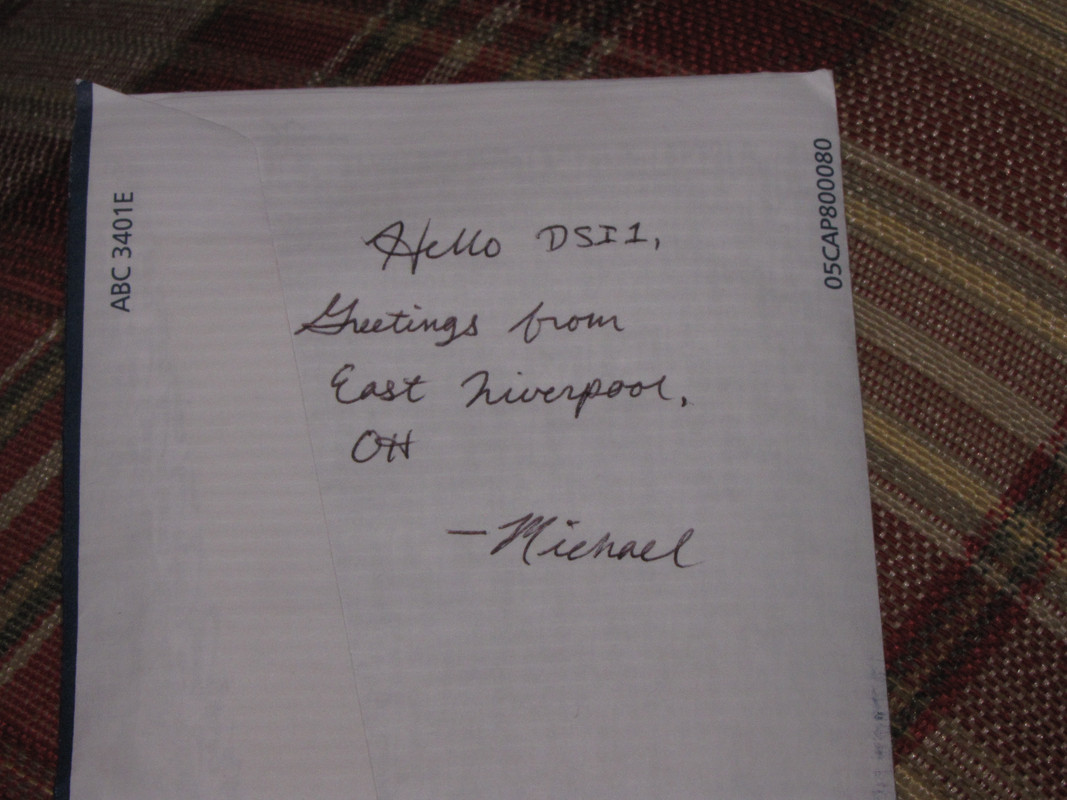 ABC 3401E
05CAP800080
Hello DSI1,
Greetings from
East Liverpool,
OH
—Michael